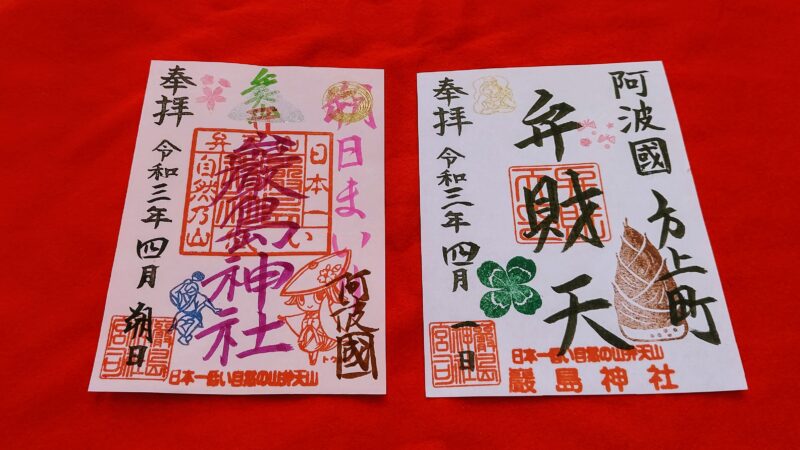 奉拝
令和三年 四月 朔日
朔日まい
弁天山
巖島神社
阿波國
日本一低い
弁
自然乃山
巖島
神社
宮司
日本一低い自然の山弁天山
奉拝
令和三年 四月 一日
弁財天
阿波國
方上町
巖島
神社
宮司
日本一低い自然の山弁天山
巖島神社